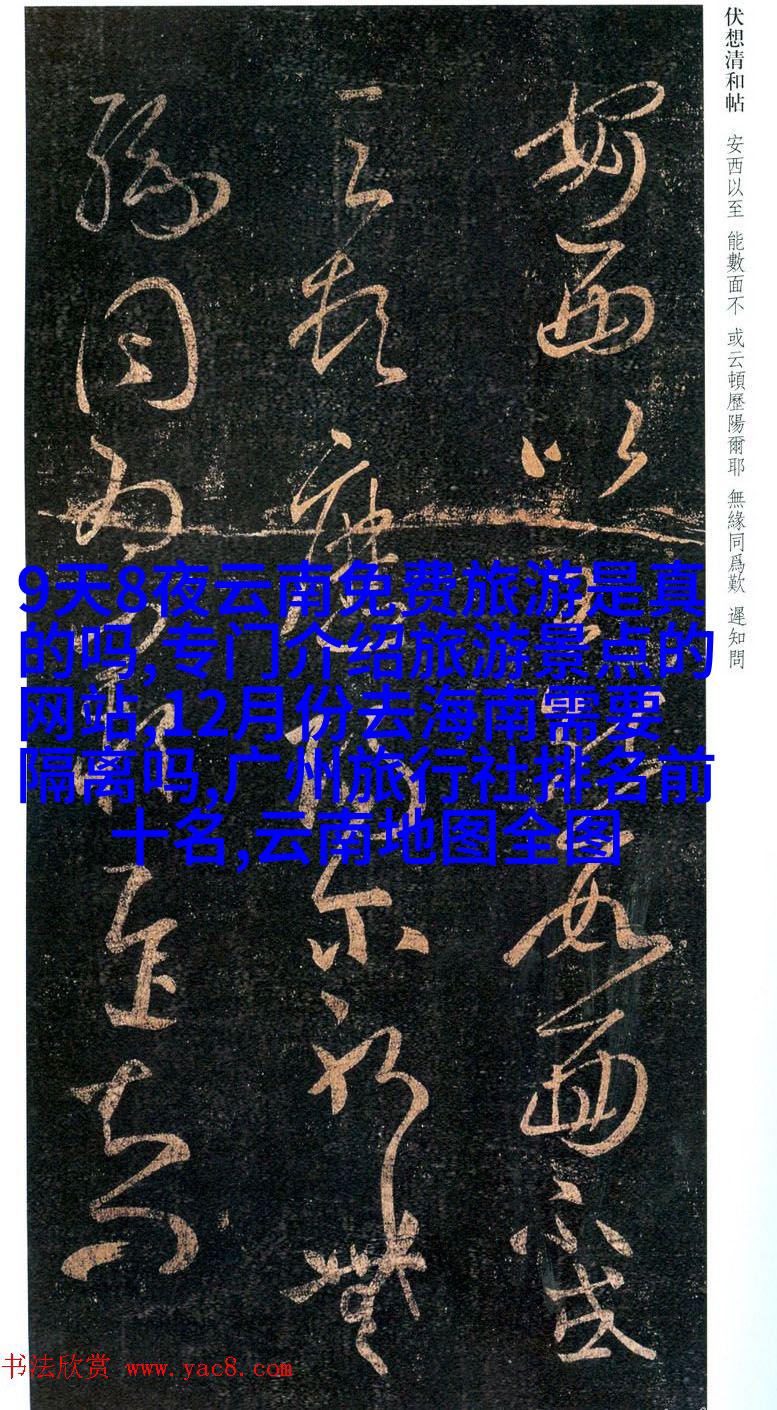 伏想清和帖 安西以至 能數面不 或云頓歷陽爾耶 無緣同爲歎 遲知問
安西以至能數面不或
云頓歷陽爾耶無
緣同爲歎遲知問
9天8夜云南免费旅游是真
的吗,专门介绍旅游景点的
网站,12月份去海南需要
隔离吗,广州旅行社排名前
十名,云南地图全图
书法欣赏 www.yac8.com